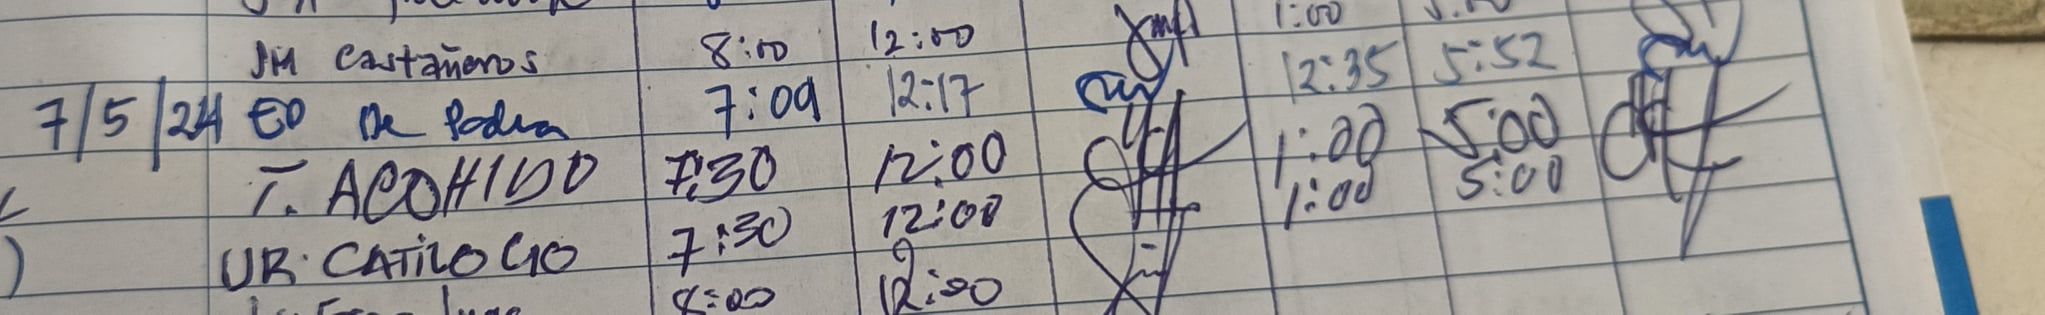 1:00
JM Castañeros 8:00 12:00 12:35 5:52
7/5/24 ED De Padua 7:09 12:17 1:00 5:00
T. ACOHIDO 7:30 12:00 1:00 5:00
UR. CATILO GIO 7:30 12:00
8:00 12:00